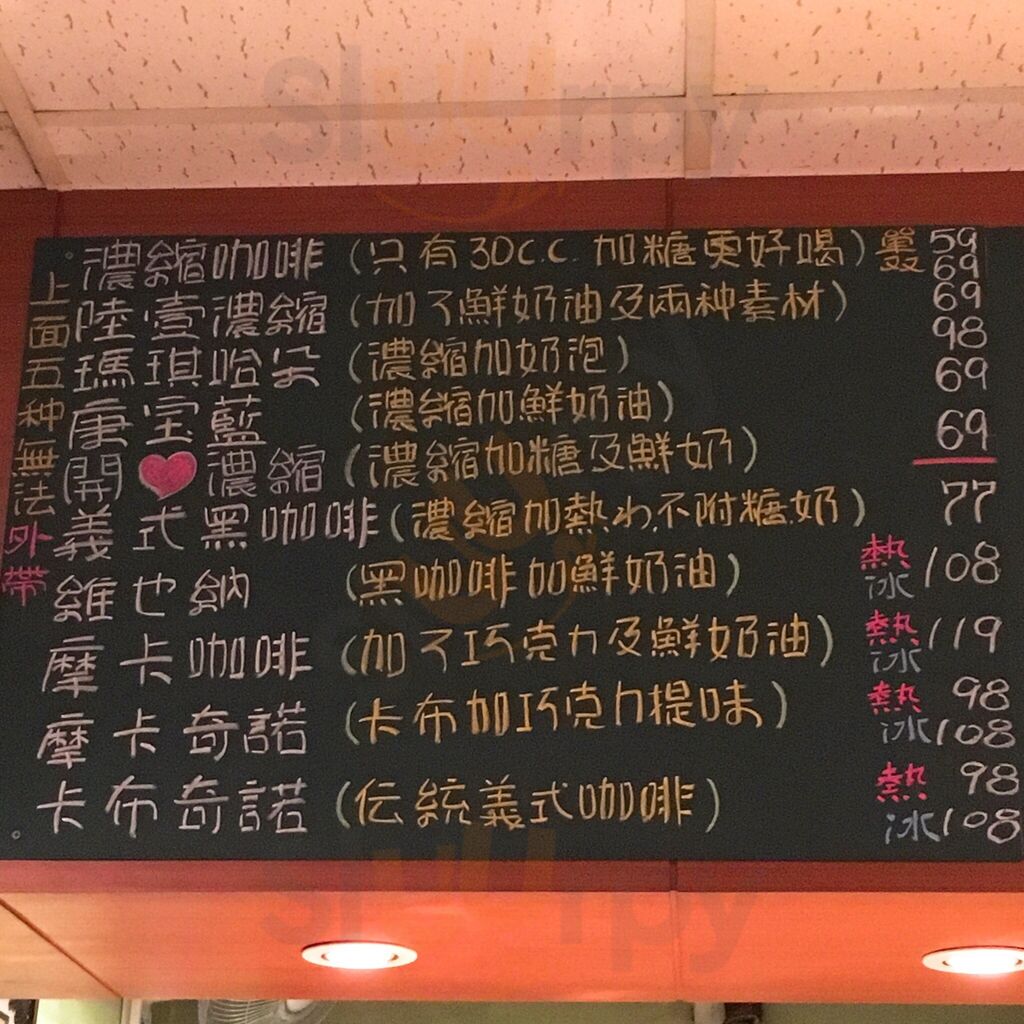 濃縮咖啡 (只有30C.C. 加糖更好喝) 單 59
双 69
陸壹濃縮 (加了鮮奶油及兩种素材) 69
瑪琪哈朵 (濃縮加奶泡) 98
康宝藍 (濃縮加鮮奶油) 69
開♥濃縮 (濃縮加糖及鮮奶) 69
義式黑咖啡 (濃縮加熱水.不附糖.奶) 77
維也納 (黑咖啡加鮮奶油) 熱 冰 108
摩卡咖啡 (加了巧克力及鮮奶油) 熱 冰 119
摩卡奇諾 (卡布加巧克力提味) 熱 98
冰 108
卡布奇諾 (伝統義式咖啡) 熱 98
冰 108
上面五种無法外帶
Sluurpy
Sluurpy